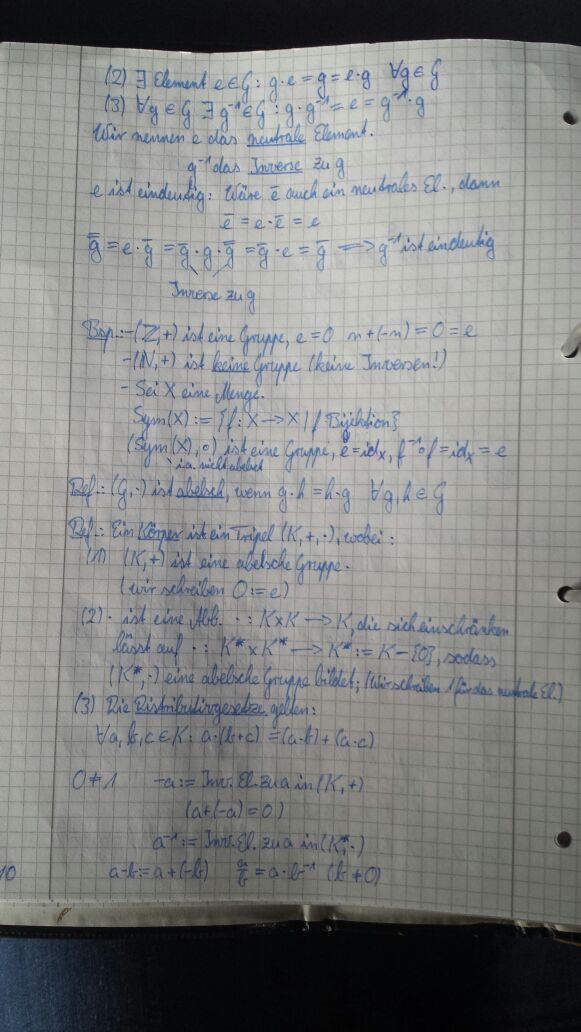 (2) ∃ Element e∈G: g·e=g=e·g ∀g∈G
(3) ∀g∈G ∃ g⁻¹∈G: g·g⁻¹=e=g⁻¹·g
Wir nennen e das neutrale Element.
g⁻¹ das Inverse zu g
e ist eindeutig: Wäre ē auch ein neutrales El., dann
ē = e·ē = e
g̿ = e·g̅ = g̅·g·g̅ = g̅·e = g̅ ⟹ g⁻¹ ist eindeutig
Inverse zu g
Bsp.: -(ℤ,+) ist eine Gruppe, e=0 n+(-n)=0=e
-(ℕ,+) ist keine Gruppe (keine Inversen!)
- Sei X eine Menge.
Sym(X) := {f: X→X | f Bijektion}
(Sym(X),∘) ist eine Gruppe, e=id_X, f⁻¹∘f=id_X=e
i.a. nicht abelsch
Def.: (G,·) ist abelsch, wenn g·h=h·g ∀g,h∈G
Def.: Ein Körper ist ein Tripel (K,+,·), wobei:
(1) (K,+) ist eine abelsche Gruppe.
(wir schreiben 0:=e)
(2) · ist eine Abb. ·: K×K→K, die sich einschränken
lässt auf ·: K*×K*→K*:=K-{0}, sodass
(K*,·) eine abelsche Gruppe bildet; (Wir schreiben 1 für das neutrale El.)
(3) Die Distributivgesetze gelten:
∀a,b,c∈K: a·(b+c)=(a·b)+(a·c)
0≠1 -a:= Inv. El. zu a in (K,+)
(a+(-a)=0)
a⁻¹:= Inv. El. zu a in (K*,·)
a-b:=a+(-b) a/b=a·b⁻¹ (b≠0)
10